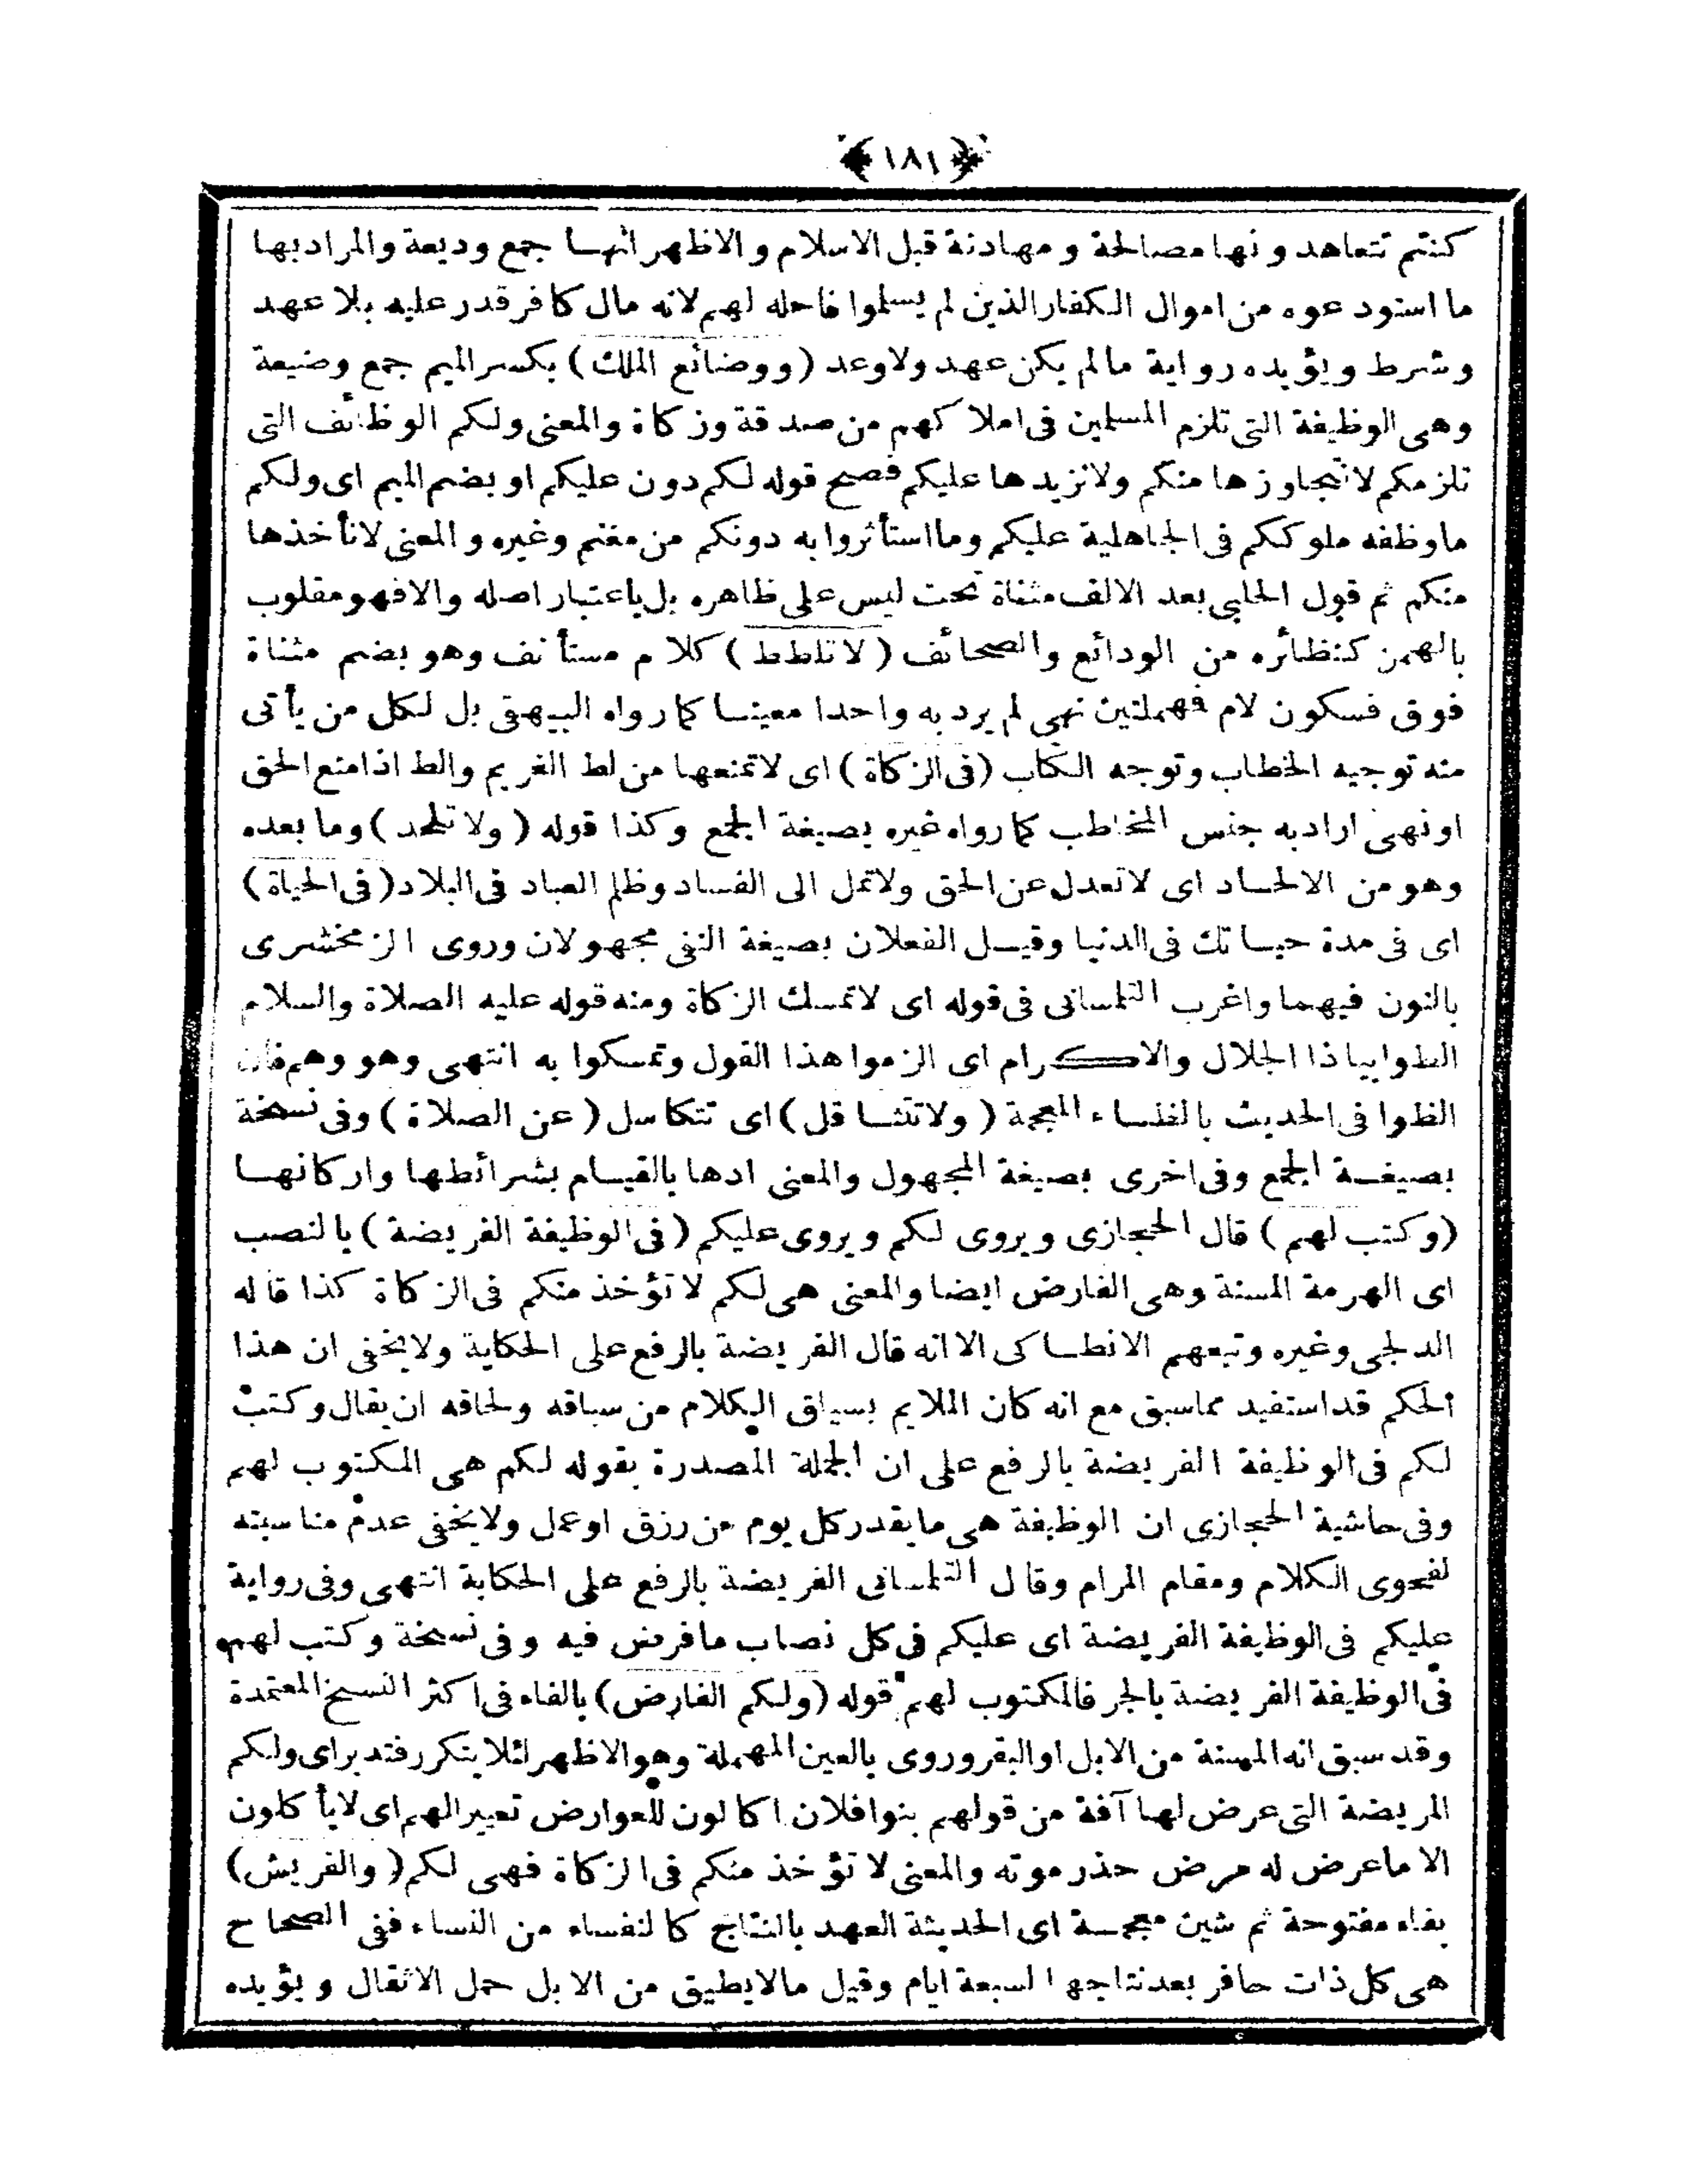 ﴿ ١٨١ ﴾
كنتم تتعاهد ونها مصالحة ومهادنة قبل الاسلام والاظهر انها جمع وديعة والمراد بها
ما استودعوه من اموال الكفار الذين لم يسلموا فاحله لهم لانه مال كافر قدر عليه بلا عهد
وشرط ويؤيده رواية مالم يكن عهد ولا وعد (ووضائع الملك) بكسر الميم جمع وضيعة
وهى الوظيفة التى تلزم المسلمين فى املاكهم من صدقة وزكاة والمعنى ولكم الوظائف التى
تلزمكم لا نتجاوزها منكم ولا نزيدها عليكم فصح قوله لكم دون عليكم او بضم الميم اى ولكم
ما وظفه ملوككم فى الجاهلية عليكم وما استأثروا به دونكم من مغنم وغيره والمعنى لا نأخذها
منكم ثم قول الحلبى بعد الالف مثناة تحت ليس على ظاهره بل باعتبار اصله والا فهو مقلوب
بالهمز كنظائره من الودائع والصحائف (لا تلطط) كلام مستأنف وهو بضم مثناة
فوق فسكون لام فهملتين نهى لم يرد به واحدا معينا كما رواه البيهقى بل لكل من يأتى
منه توجيه الخطاب وتوجه الكتاب (فى الزكاة) اى لا تمنعها من لط الغريم والط اذا منع الحق
او نهى اراد به جنس المخاطب كما رواه غيره بصيغة الجمع وكذا قوله (ولا تلحد) وما بعده
وهو من الالحاد اى لا تعدل عن الحق ولا تمل الى الفساد وظلم العباد فى البلاد (فى الحياة)
اى فى مدة حياتك فى الدنيا وقيل الفعلان بصيغة النفى مجهولان وروى الزمخشرى
بالنون فيهما واغرب التلمسانى فى قوله اى لا تمسك الزكاة ومنه قوله عليه الصلاة والسلام
الطوا بياذا الجلال والاكرام اى الزموا هذا القول وتمسكوا به انتهى وهو وهم فان
الظوا فى الحديث بالظاء المعجمة (ولا تتثاقل) اى تتكاسل (عن الصلاة) وفى نسخة
بصيغة الجمع وفى اخرى بصيغة المجهول والمعنى ادها بالقيام بشرائطها واركانها
(وكتب لهم) قال الحجازى ويروى لكم ويروى عليكم (فى الوظيفة الفريضة) بالنصب
اى الهرمة المسنة وهى الفارض ايضا والمعنى هى لكم لا تؤخذ منكم فى الزكاة كذا قاله
الدلجى وغيره وتبعهم الانطاكى الا انه قال الفريضة بالرفع على الحكاية ولا يخفى ان هذا
الحكم قد استفيد مما سبق مع انه كان الملايم بسياق الكلام من سباقه ولحاقه ان يقال وكتب
لكم فى الوظيفة الفريضة بالرفع على ان الجملة المصدرة بقوله لكم هى المكتوب لهم
وفى حاشية الحجازى ان الوظيفة هى ما يقدر كل يوم من رزق او عمل ولا يخفى عدم مناسبته
لفحوى الكلام ومقام المرام وقال التلمسانى الفريضة بالرفع على الحكاية انتهى وفى رواية
عليكم فى الوظيفة الفريضة اى عليكم فى كل نصاب ما فرض فيه وفى نسخة وكتب لهم
فى الوظيفة الفريضة بالجر فالمكتوب لهم قوله (ولكم الفارض) بالفاء فى اكثر النسخ المعتمدة
وقد سبق انه المسنة من الابل او البقر وروى بالعين المهملة وهو الاظهر لئلا يتكرر فتدبر اى ولكم
المريضة التى عرض لها آفة من قولهم بنوا فلان اكالون للعوارض تعيير الهم اى لا يأكلون
الا ما عرض له مرض حذر موته والمعنى لا تؤخذ منكم فى الزكاة فهى لكم (والفريش)
بفاء مفتوحة ثم شين معجمة اى الحديثة العهد بالنتاج كالنفساء من النساء ففى الصحاح
هى كل ذات حافر بعد نتاجها السبعة ايام وقيل مالا يطيق من الابل حمل الاثقال ويؤيده